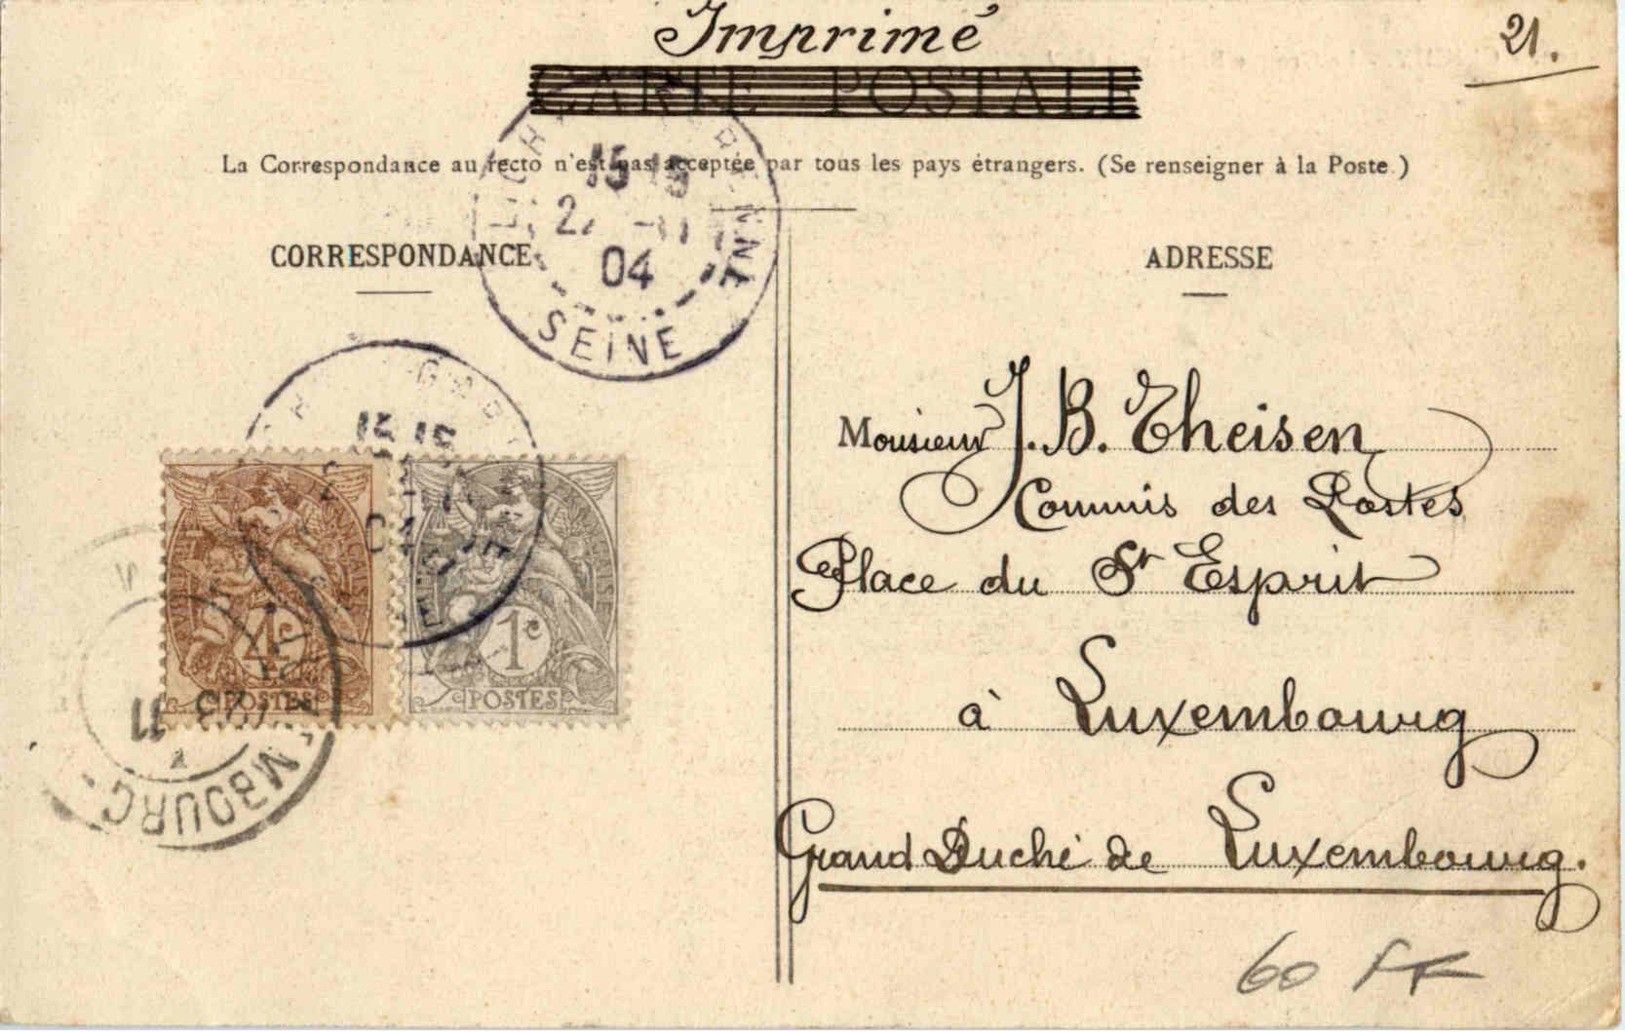 Imprimé
21.
CARTE POSTALE
La Correspondance au recto n'est pas acceptée par tous les pays étrangers. (Se renseigner à la Poste.)
CORRESPONDANCE
ADRESSE
15 15
04
SEINE
Monsieur J. B. Theisen
Commis des Postes
Place du St Esprit
à Luxembourg
Grand Duché de Luxembourg.
4c
POSTES
1c
POSTES
11
MBOURG
60 FF